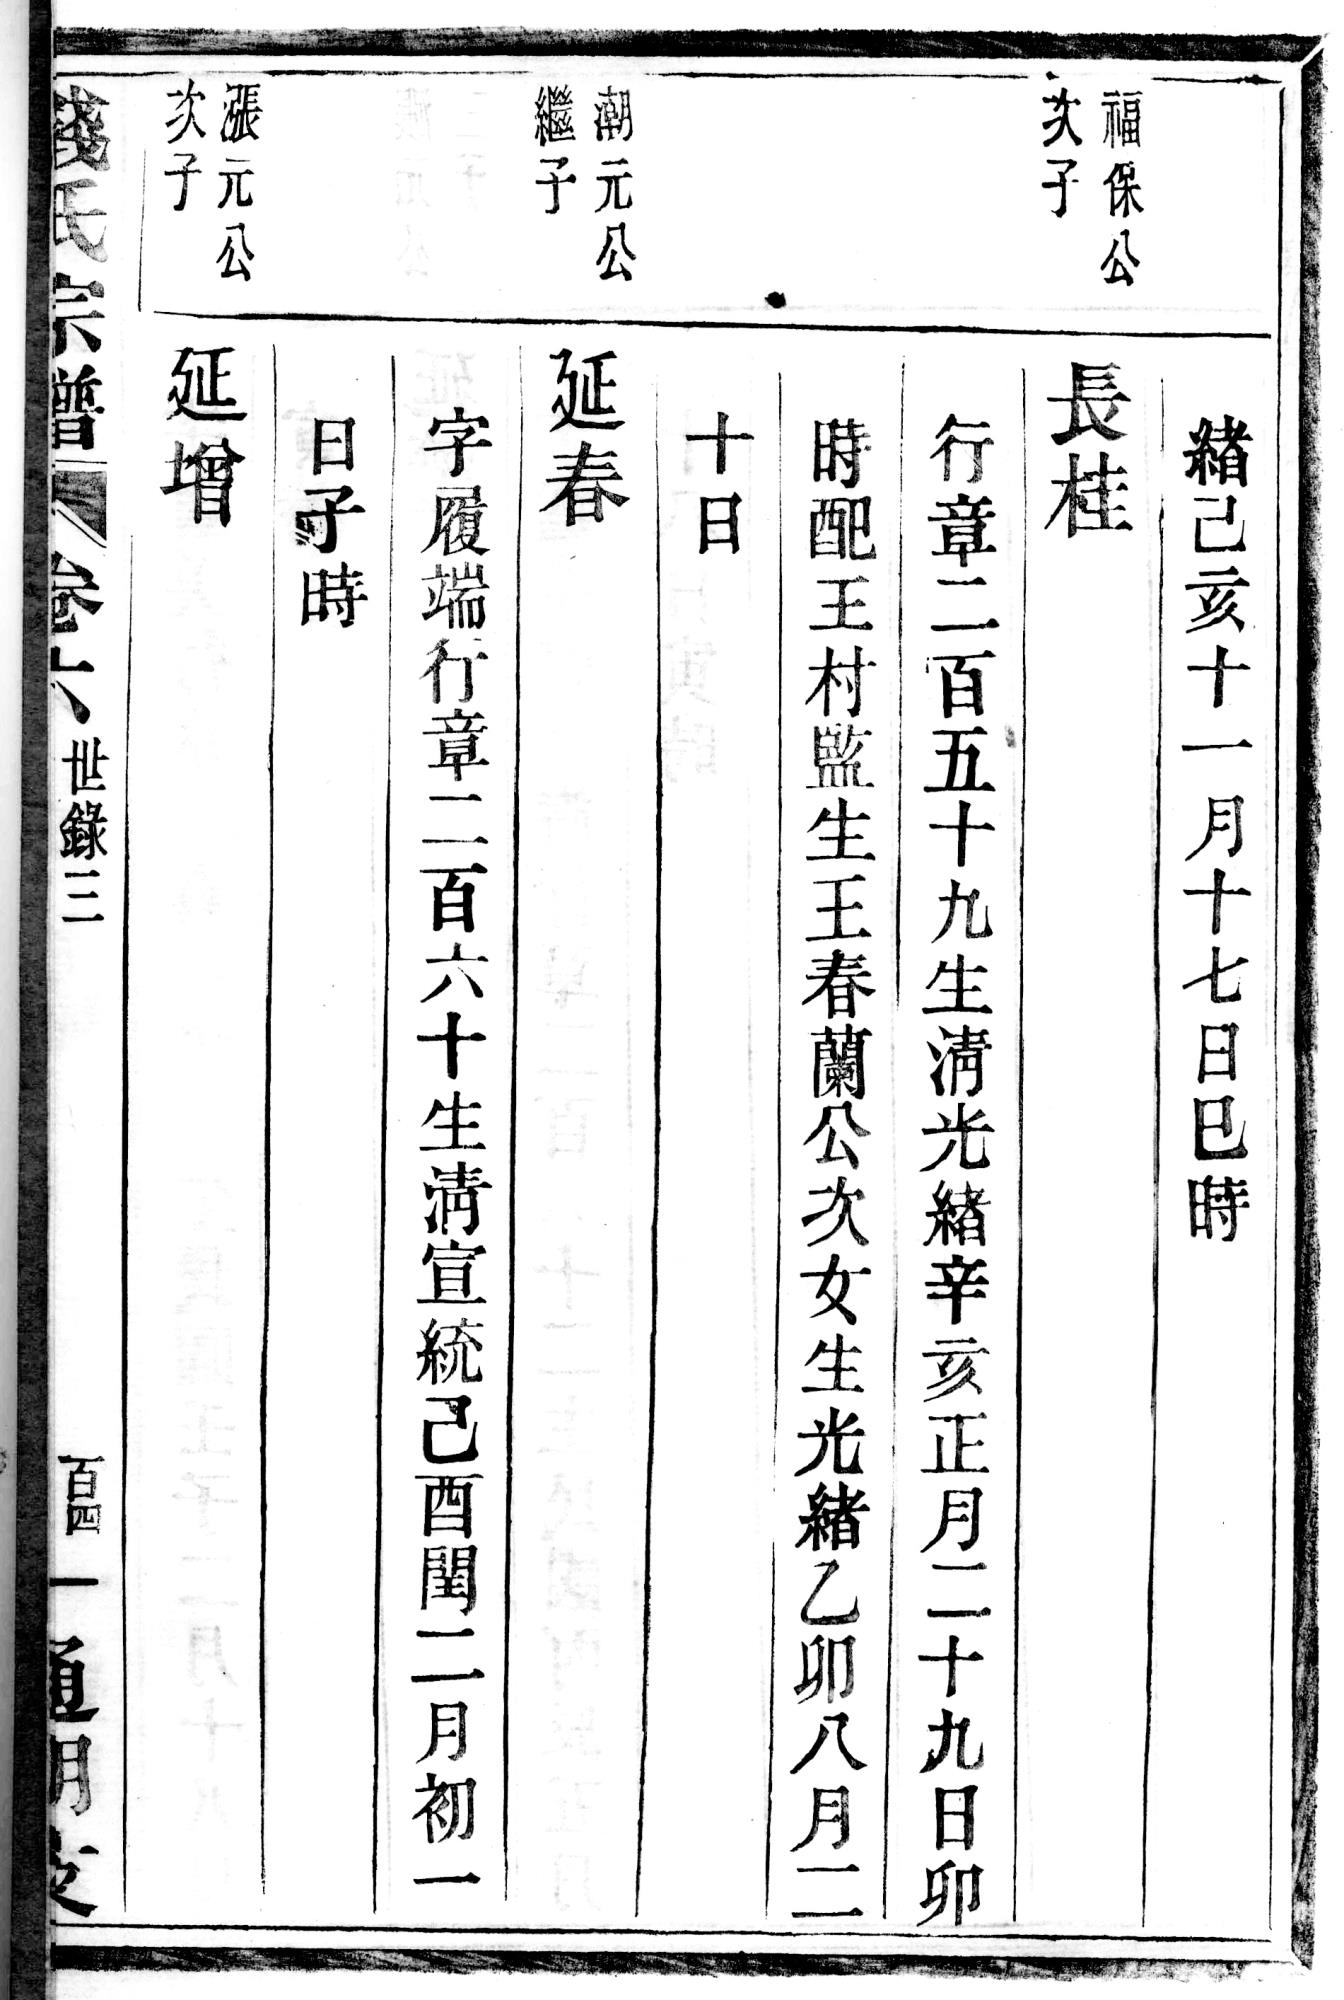 緒己亥十一月十七日巳時
福保公
次子
長桂
行章二百五十九生淸光緒辛亥正月二十九日卯
時配王村監生王春蘭公次女生光緒乙卯八月二
十日
潮元公
繼子
延春
字履端行章二百六十生淸宣統己酉閏二月初一
日子時
漲元公
次子
延增
錢氏宗譜 卷六 世錄三 百四一 通明支